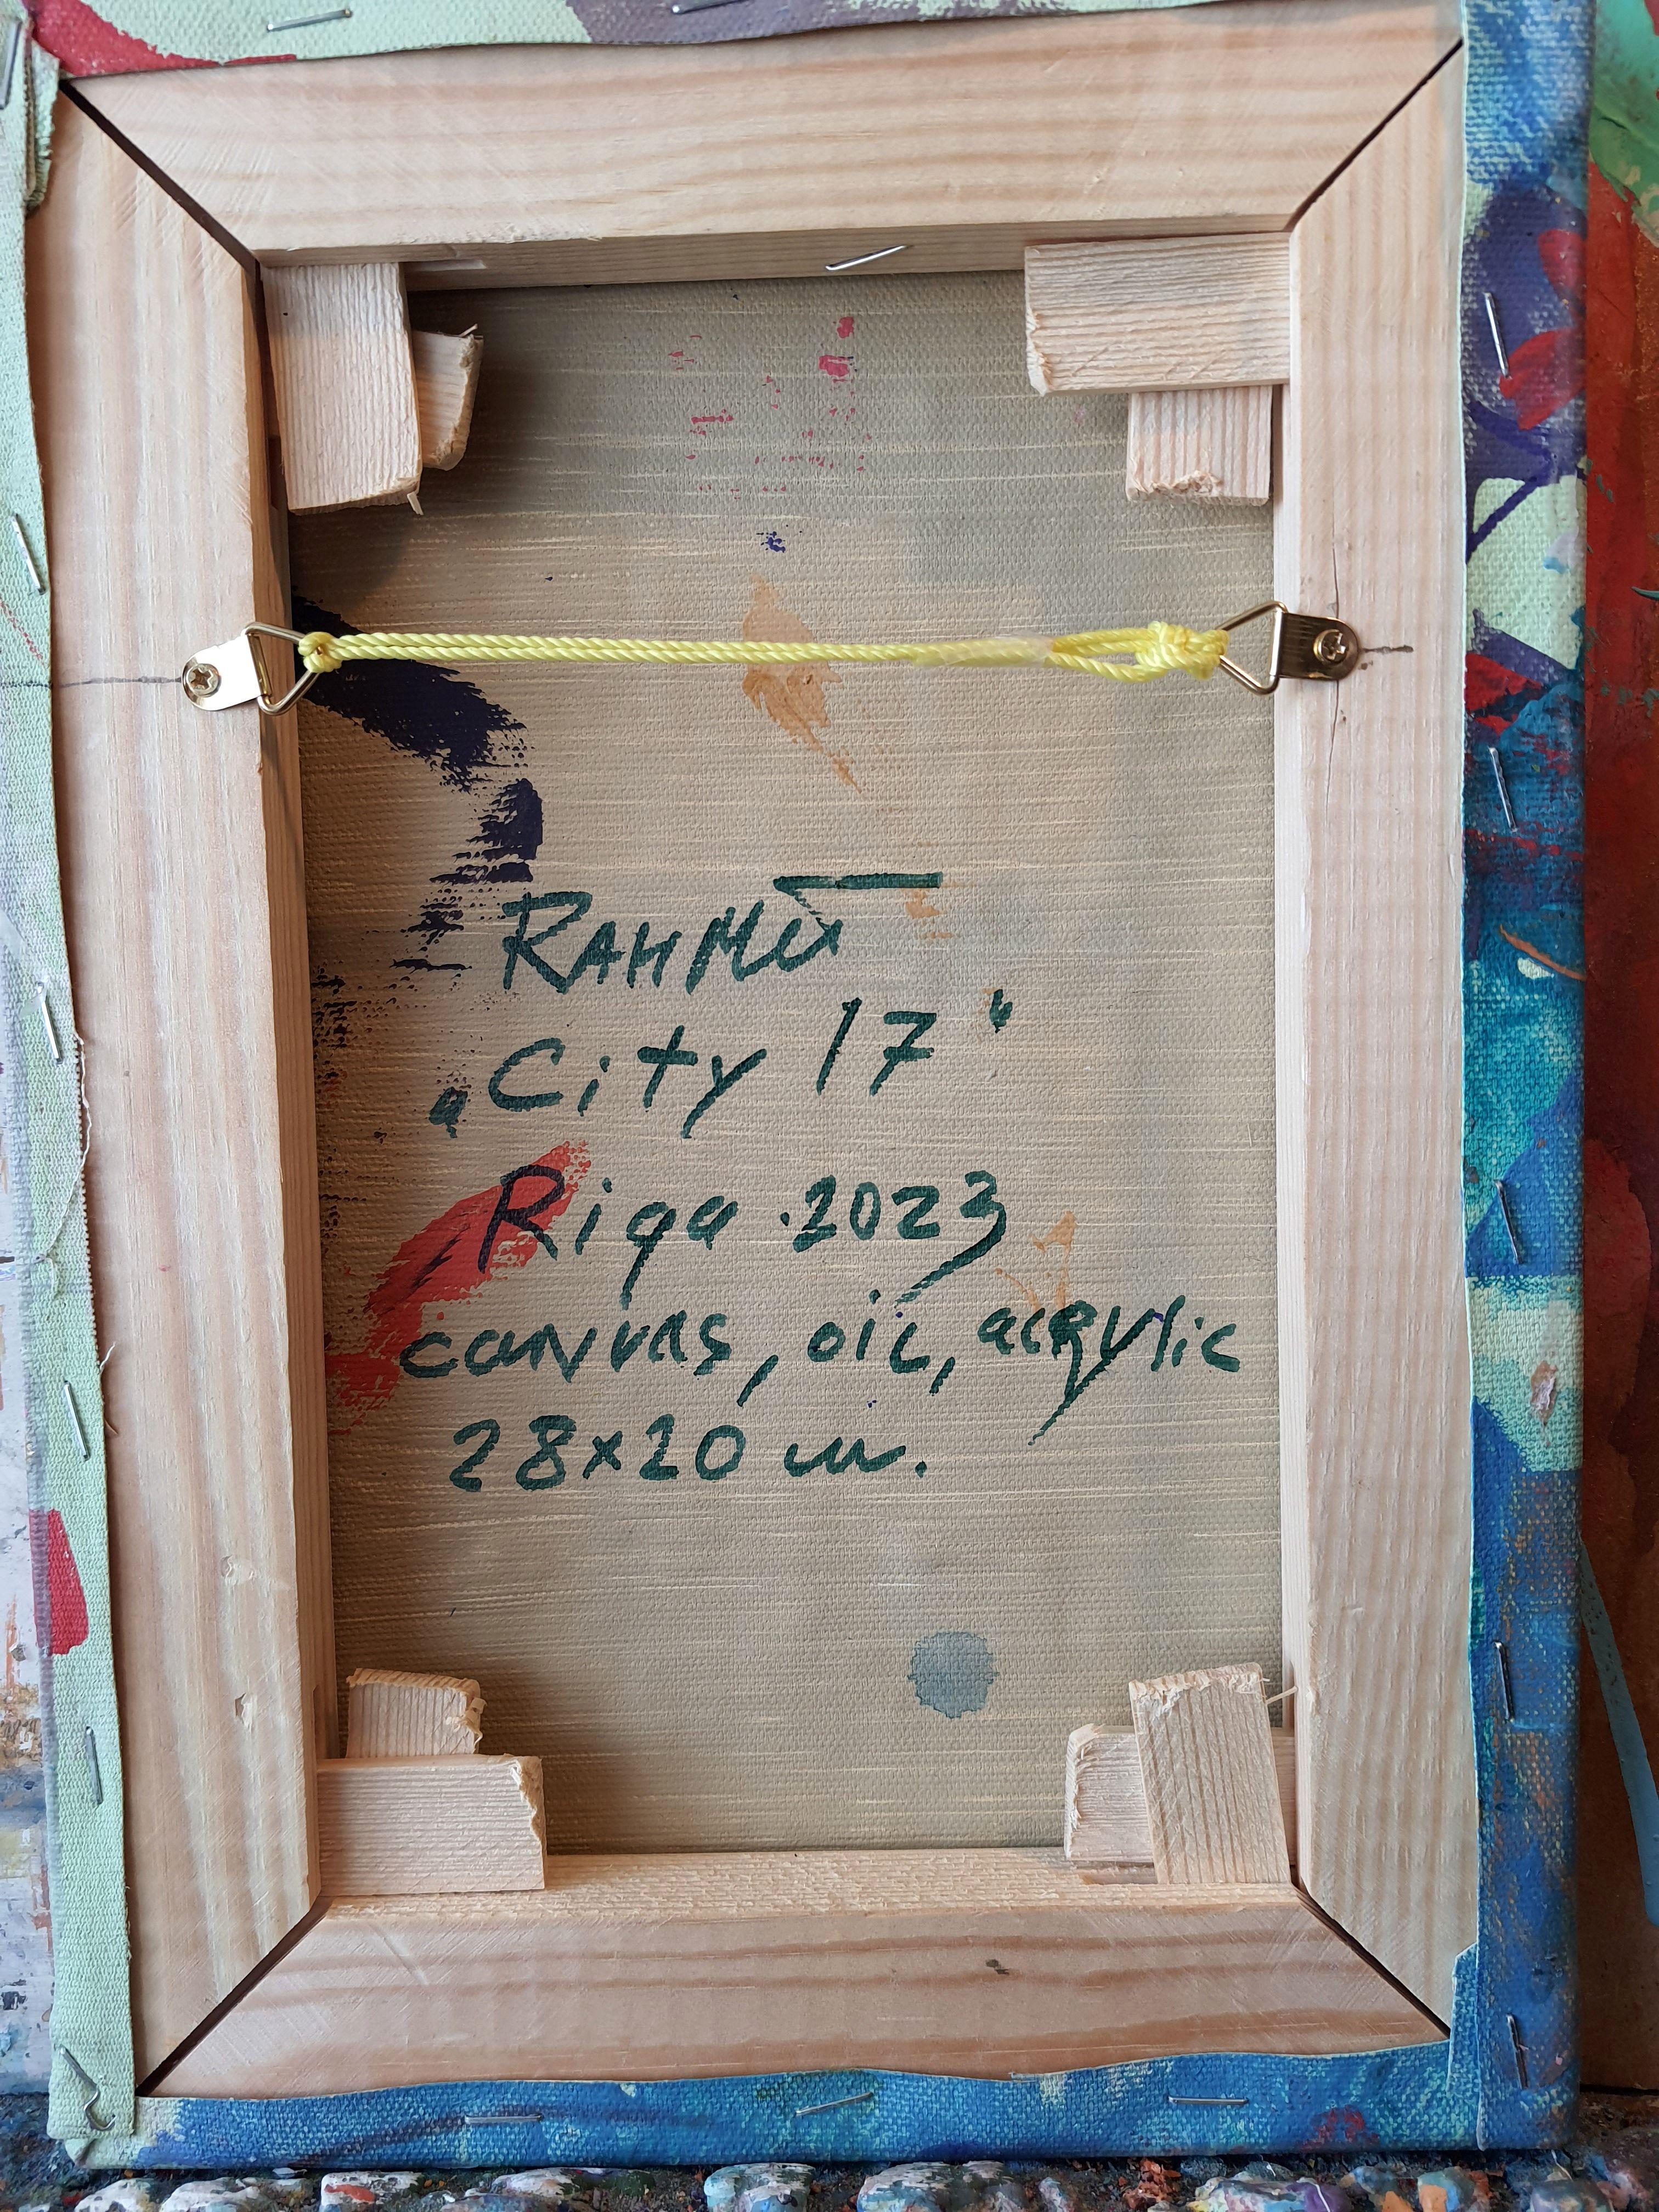 RAHMET
„City 17“
Riga .2023
canvas, oil, acrylic
28x20 cm.